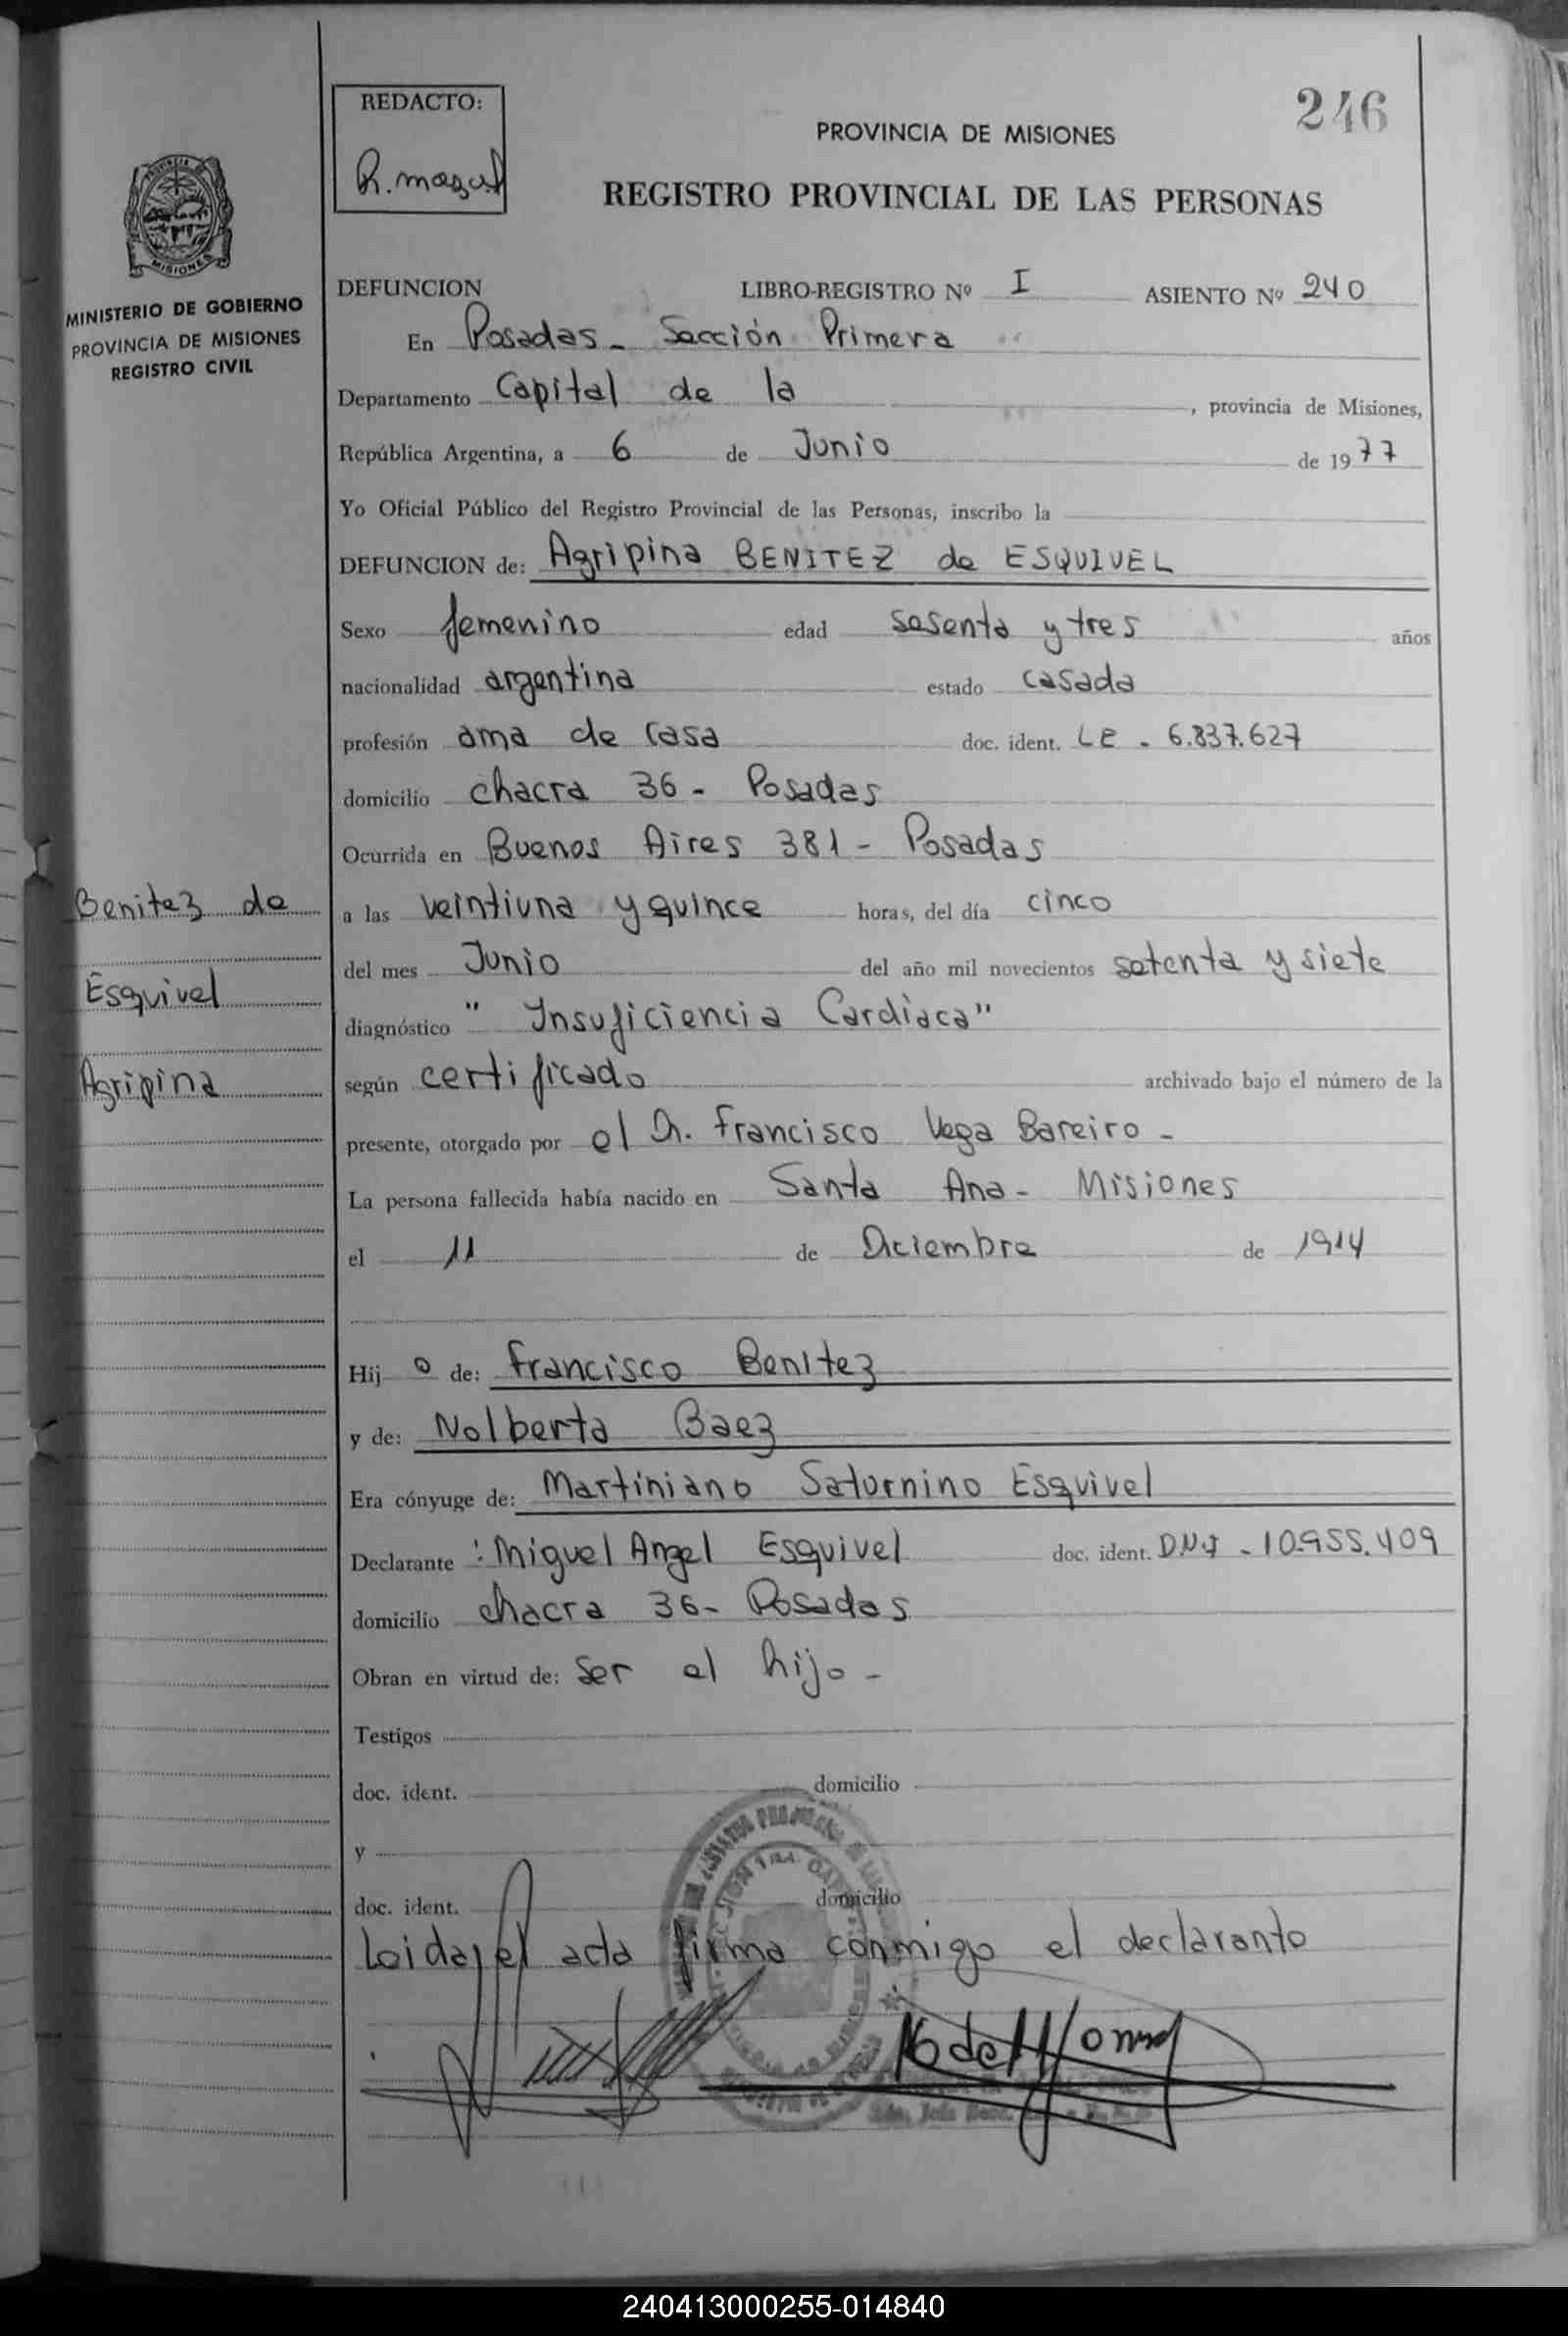 246
REDACTO:
PROVINCIA DE MISIONES
REGISTRO PROVINCIAL DE LAS PERSONAS
PROVINCIA
MISIONES
MINISTERIO DE GOBIERNO
PROVINCIA DE MISIONES
REGISTRO CIVIL
DEFUNCION LIBRO-REGISTRO Nº I ASIENTO Nº 240
En Posadas - Sección Primera
Departamento Capital de la , provincia de Misiones,
República Argentina, a 6 de Junio de 1977
Yo Oficial Público del Registro Provincial de las Personas, inscribo la
DEFUNCION de: Agripina BENITEZ de ESQUIVEL
Sexo femenino edad sesenta y tres años
nacionalidad argentina estado casada
profesión ama de casa doc. ident. LE - 6.837.627
domicilio chacra 36 - Posadas
Ocurrida en Buenos Aires 381 - Posadas
a las veintiuna y quince horas, del día cinco
del mes Junio del año mil novecientos setenta y siete
diagnóstico " Insuficiencia Cardiaca"
según certificado archivado bajo el número de la
presente, otorgado por el Dr. Francisco Vega Bareiro -
La persona fallecida había nacido en Santa Ana - Misiones
el 11 de Diciembre de 1914
Hij o de: Francisco Benitez
y de: Nolberta Baez
Era cónyuge de: Martiniano Saturnino Esquivel
Declarante : Miguel Angel Esquivel doc. ident. DNI - 10.955.409
domicilio chacra 36 - Posadas
Obran en virtud de: Ser el hijo -
Testigos
doc. ident. domicilio
y
doc. ident. domicilio
Leida el acta firma conmigo el declarante
Benitez de
Esquivel
Agripina
240413000255-014840